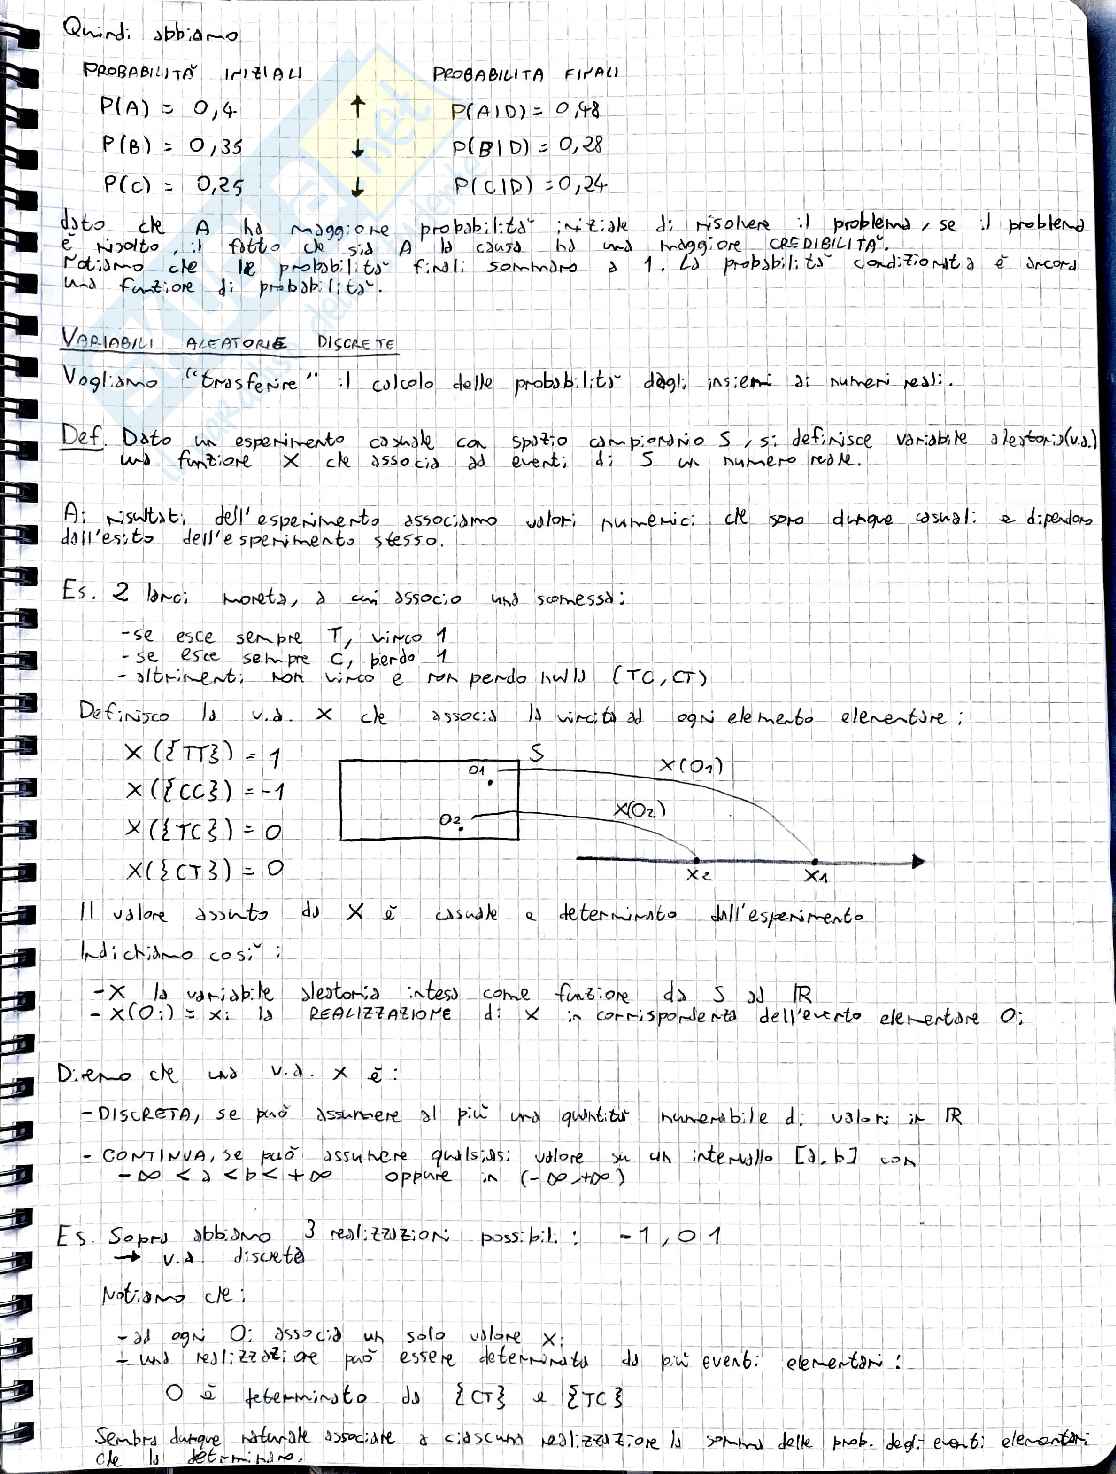 Quindi abbiamo
PROBABILITÀ INIZIALI PROBABILITÀ FINALI
P(A) = 0,4 ↑ P(A|D) = 0,48
P(B) = 0,35 ↓ P(B|D) = 0,28
P(C) = 0,25 ↓ P(C|D) = 0,24
dato che A ha maggiore probabilità iniziale di risolvere il problema, se il problema
è risolto, il fatto che sia A la causa ha una maggiore CREDIBILITÀ.
Notiamo che le probabilità finali sommano a 1. La probabilità condizionata è ancora
una funzione di probabilità.
VARIABILI ALEATORIE DISCRETE
Vogliamo "trasferire" il calcolo delle probabilità dagli insiemi ai numeri reali.
Def. Dato un esperimento casuale con spazio campionario S, si definisce variabile aleatoria (v.a.)
una funzione X che associa ad eventi di S un numero reale.
Ai risultati dell'esperimento associamo valori numerici che sono dunque casuali e dipendono
dall'esito dell'esperimento stesso.
Es. 2 lanci moneta, a cui associo una scomessa:
-se esce sempre T, vinco 1
-se esce sempre C, perdo 1
-altrimenti non vinco e non perdo nulla (TC, CT)
Definisco la v.a. X che associa la vincita ad ogni elemento elementare:
X({TT}) = 1
X({CC}) = -1
X({TC}) = 0
X({CT}) = 0
S
O1 X(O1)
O2 X(O2)
x2 x1
Il valore assunto da X è casuale e determinato dall'esperimento
Indichiamo così:
-X la variabile aleatoria intesa come funzione da S ad ℝ
-X(Oi) = xi la REALIZZAZIONE di X in corrispondenza dell'evento elementare Oi
Diremo che una v.a. X è:
-DISCRETA, se può assumere al più una quantità numerabile di valori in ℝ
- CONTINUA, se può assumere qualsiasi valore su un intervallo [a,b] con
-∞ < a < b < +∞ oppure in (-∞,+∞)
Es. Sopra abbiamo 3 realizzazioni possibili: -1, 0 1
→ v.a. discreta
Notiamo che:
-ad ogni Oi associa un solo valore xi
-una realizzazione può essere determinata da più eventi elementari:
0 è determinato da {CT} e {TC}
Sembra dunque naturale associare a ciascuna realizzazione la somma delle prob. degli eventi elementari
che la determinano.